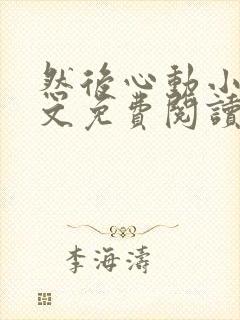 然後心動小
文免費閱讀
李海濤